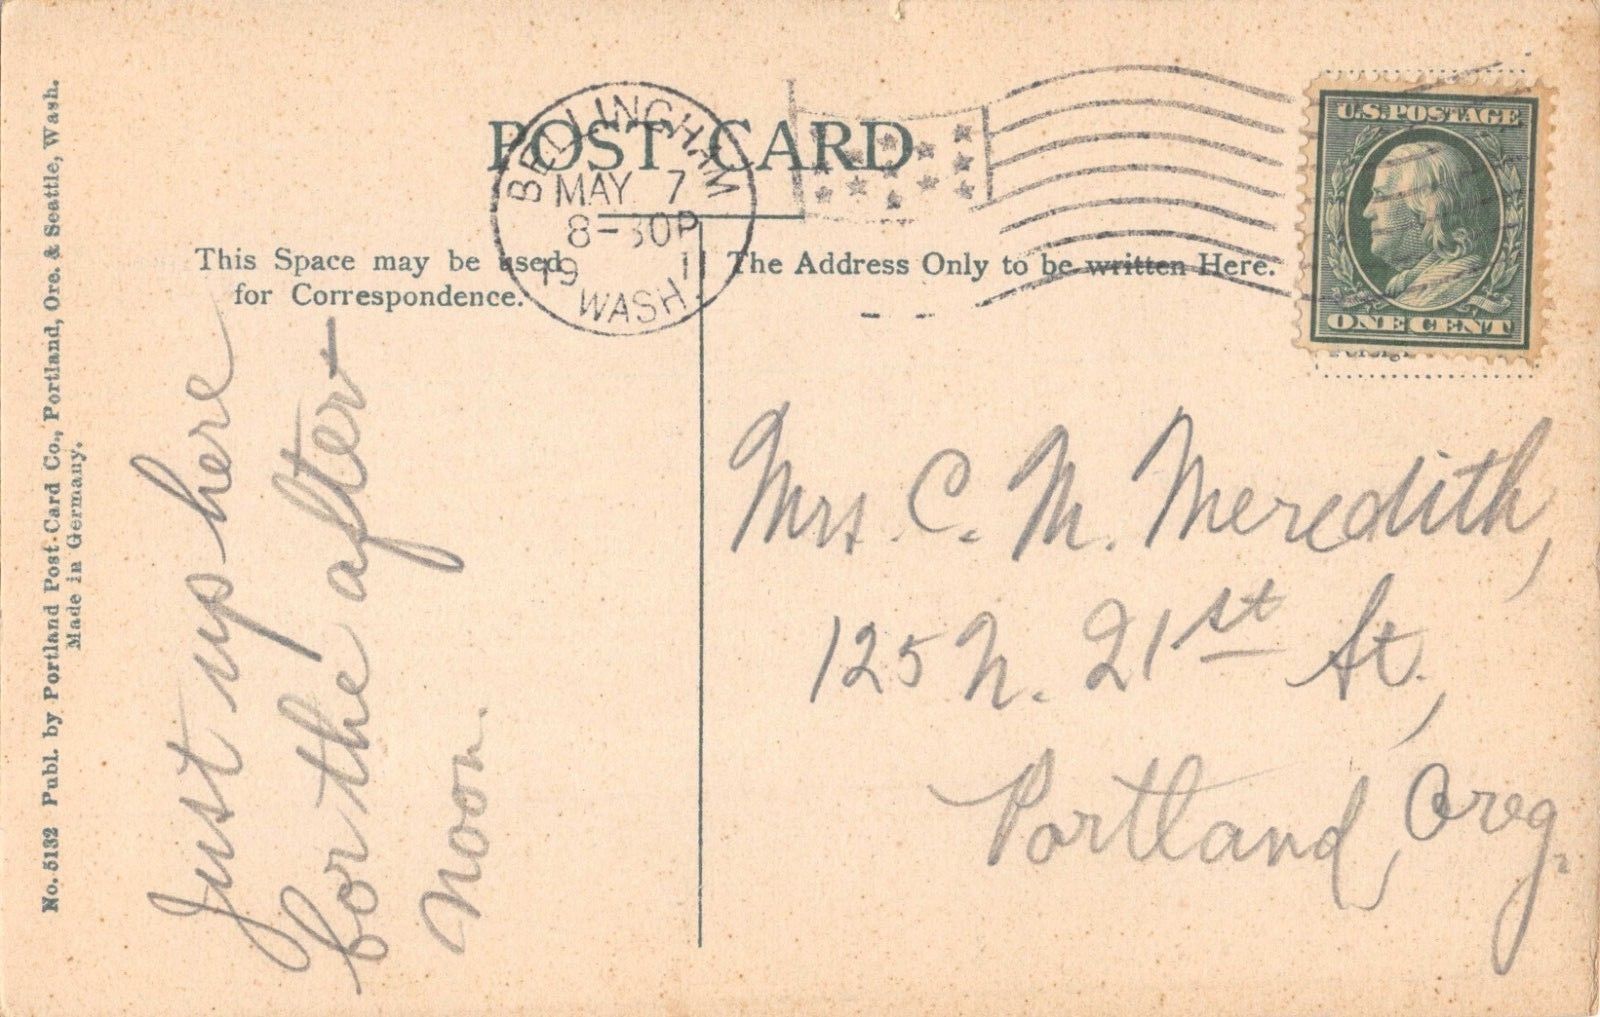 POST CARD
BELLINGHAM
MAY 7
8-30P
19 11
WASH.
U.S. POSTAGE
ONE CENT
This Space may be used
for Correspondence.
The Address Only to be written Here.
Just up here
for the after
noon.
Mrs. C. M. Meredith,
125 N. 21st St.,
Portland, Oreg.
No. 5132 Publ. by Portland Post-Card Co., Portland, Ore. & Seattle, Wash.
Made in Germany.